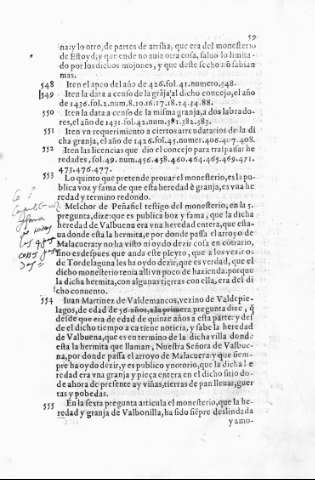 59
na y lo otro, de partes de arriba, que era del monesterio
de Estoyd, y que ende no auia otra cosa, saluo lo limita-
do por los dichos mojones, y que deste fecho no sabian
mas.
548 Iten el apeo del año de 426. fol. 41. numero. 548.
549 Iten la data a censo de la grāja al dicho concejo, el año
de 1436. fol. 2. num. 8. 10. 16. 17. 18. 24. 34. 88.
550 Iten la data a censo de la misma granja, a dos labrado-
res, el año de 1431. fol. 42. num. 381. 382. 383.
551 Iten vn requerimiento a ciertos arrendatarios de la di
cha granja, el año de 1426. fol. 45. numer. 406. 407. 408.
552 Iten las licencias que dio el concejo para traspassar he
redades, fol. 49. num. 456. 458. 460. 464. 465. 469. 471.
471. 476. 477.
553 Lo quinto que pretende prouar el monesterio, es la pu-
blica voz y fama de que esta heredad è granja, es vna he
redad y termino redondo.
Melchor de Peñafiel testigo del monesterio, en la 5.
pregunta, dize que es publica boz y fama, que la dicha
heredad de Valbuena era vna heredad entera, que esta-
ua donde esta la hermita, e por donde passa el arroyo de
Malacuera y no ha visto ni oydo dezir cosa en contrario,
sino es despues que anda este pleyto, que a los vezinos
de Tordelaguna les ha oydo dezir, que es verdad, que el
dicho monesterio tenia alli vn poco de hazienda: porque
la dicha hermita, con algunas tierras con ella, era del di
cho conuento.
554 Iuan Martinez de Valdemancos, vezino de Valdepie-
lagos, de edad de 56. años, a la primera pregunta dize, q̃
desde que era de edad de quinze años a esta parte: y del
de el dicho tiempo aca tiene noticia, y sabe la heredad
de Valbuena, que es en termino de la dicha villa donde
esta la hermita que llaman, Nuestra Señora de Valbue-
na, por donde passa el arroyo de Malacuera y que siem-
pre ha oydo dezir, y es publico y notorio, que la dicha he
redad era vna granja y pieça entera en el dicho sitio do-
de ahora de presente ay viñas, tierras de pan lleuar, guer
tas y pobedas.
555 En la sexta pregunta articula el monesterio, que la he-
redad y granja de Valbonilla, ha sido siēpre deslindada
y amo-